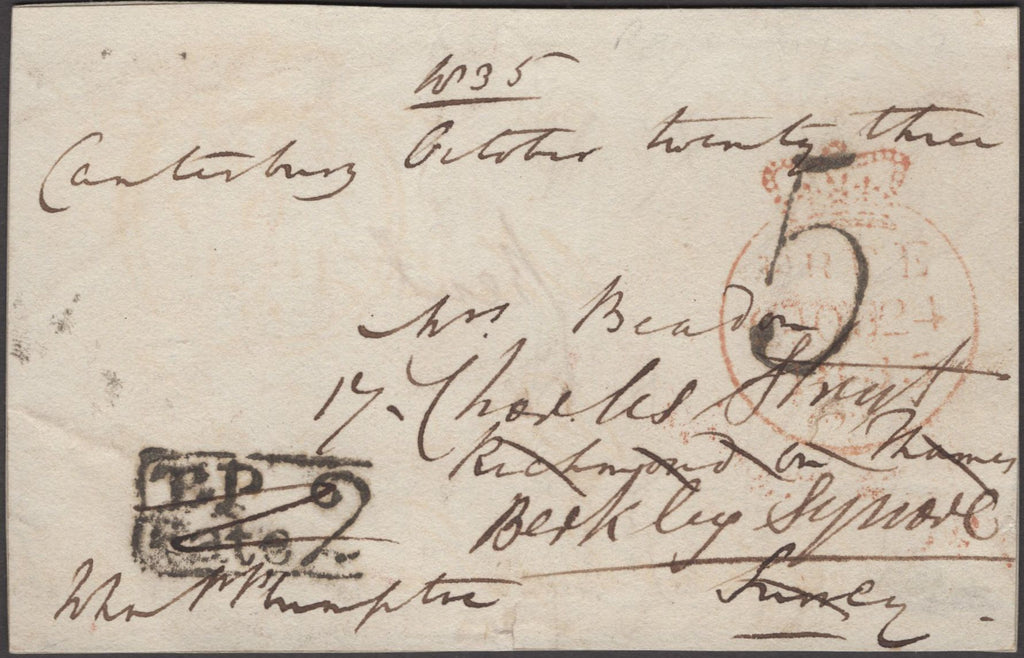 1835
Canterbury October twenty three
5
Mrs Beadon
17 Charles Street
Richmond on Thames
Berkley Square
Surrey
T.P
Rate
2